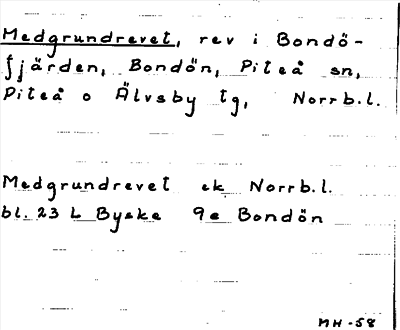 Medgrundrevet, rev i Bondö-
fjärden, Bondön, Piteå sn,
Piteå o Älvsby tg, Norrb.l.
Medgrundrevet ek Norrb.l.
bl. 23 L Byske 9e Bondön
MH-58